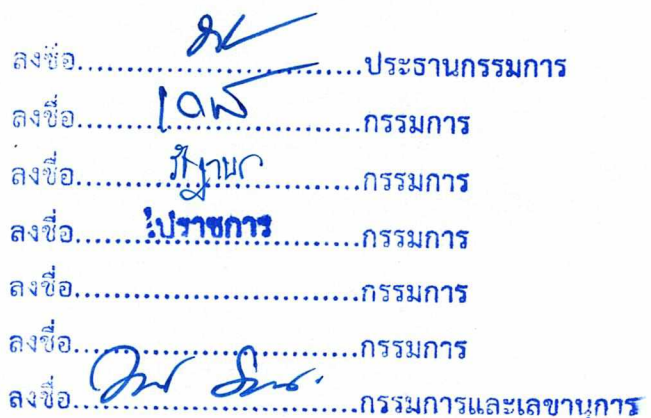 ลงชื่อ.......................................ประธานกรรมการ
ลงชื่อ.......................................กรรมการ
ลงชื่อ.......................................กรรมการ
ลงชื่อ...........ไปราชการ............กรรมการ
ลงชื่อ.......................................กรรมการ
ลงชื่อ.......................................กรรมการ
ลงชื่อ.......................................กรรมการและเลขานุการ